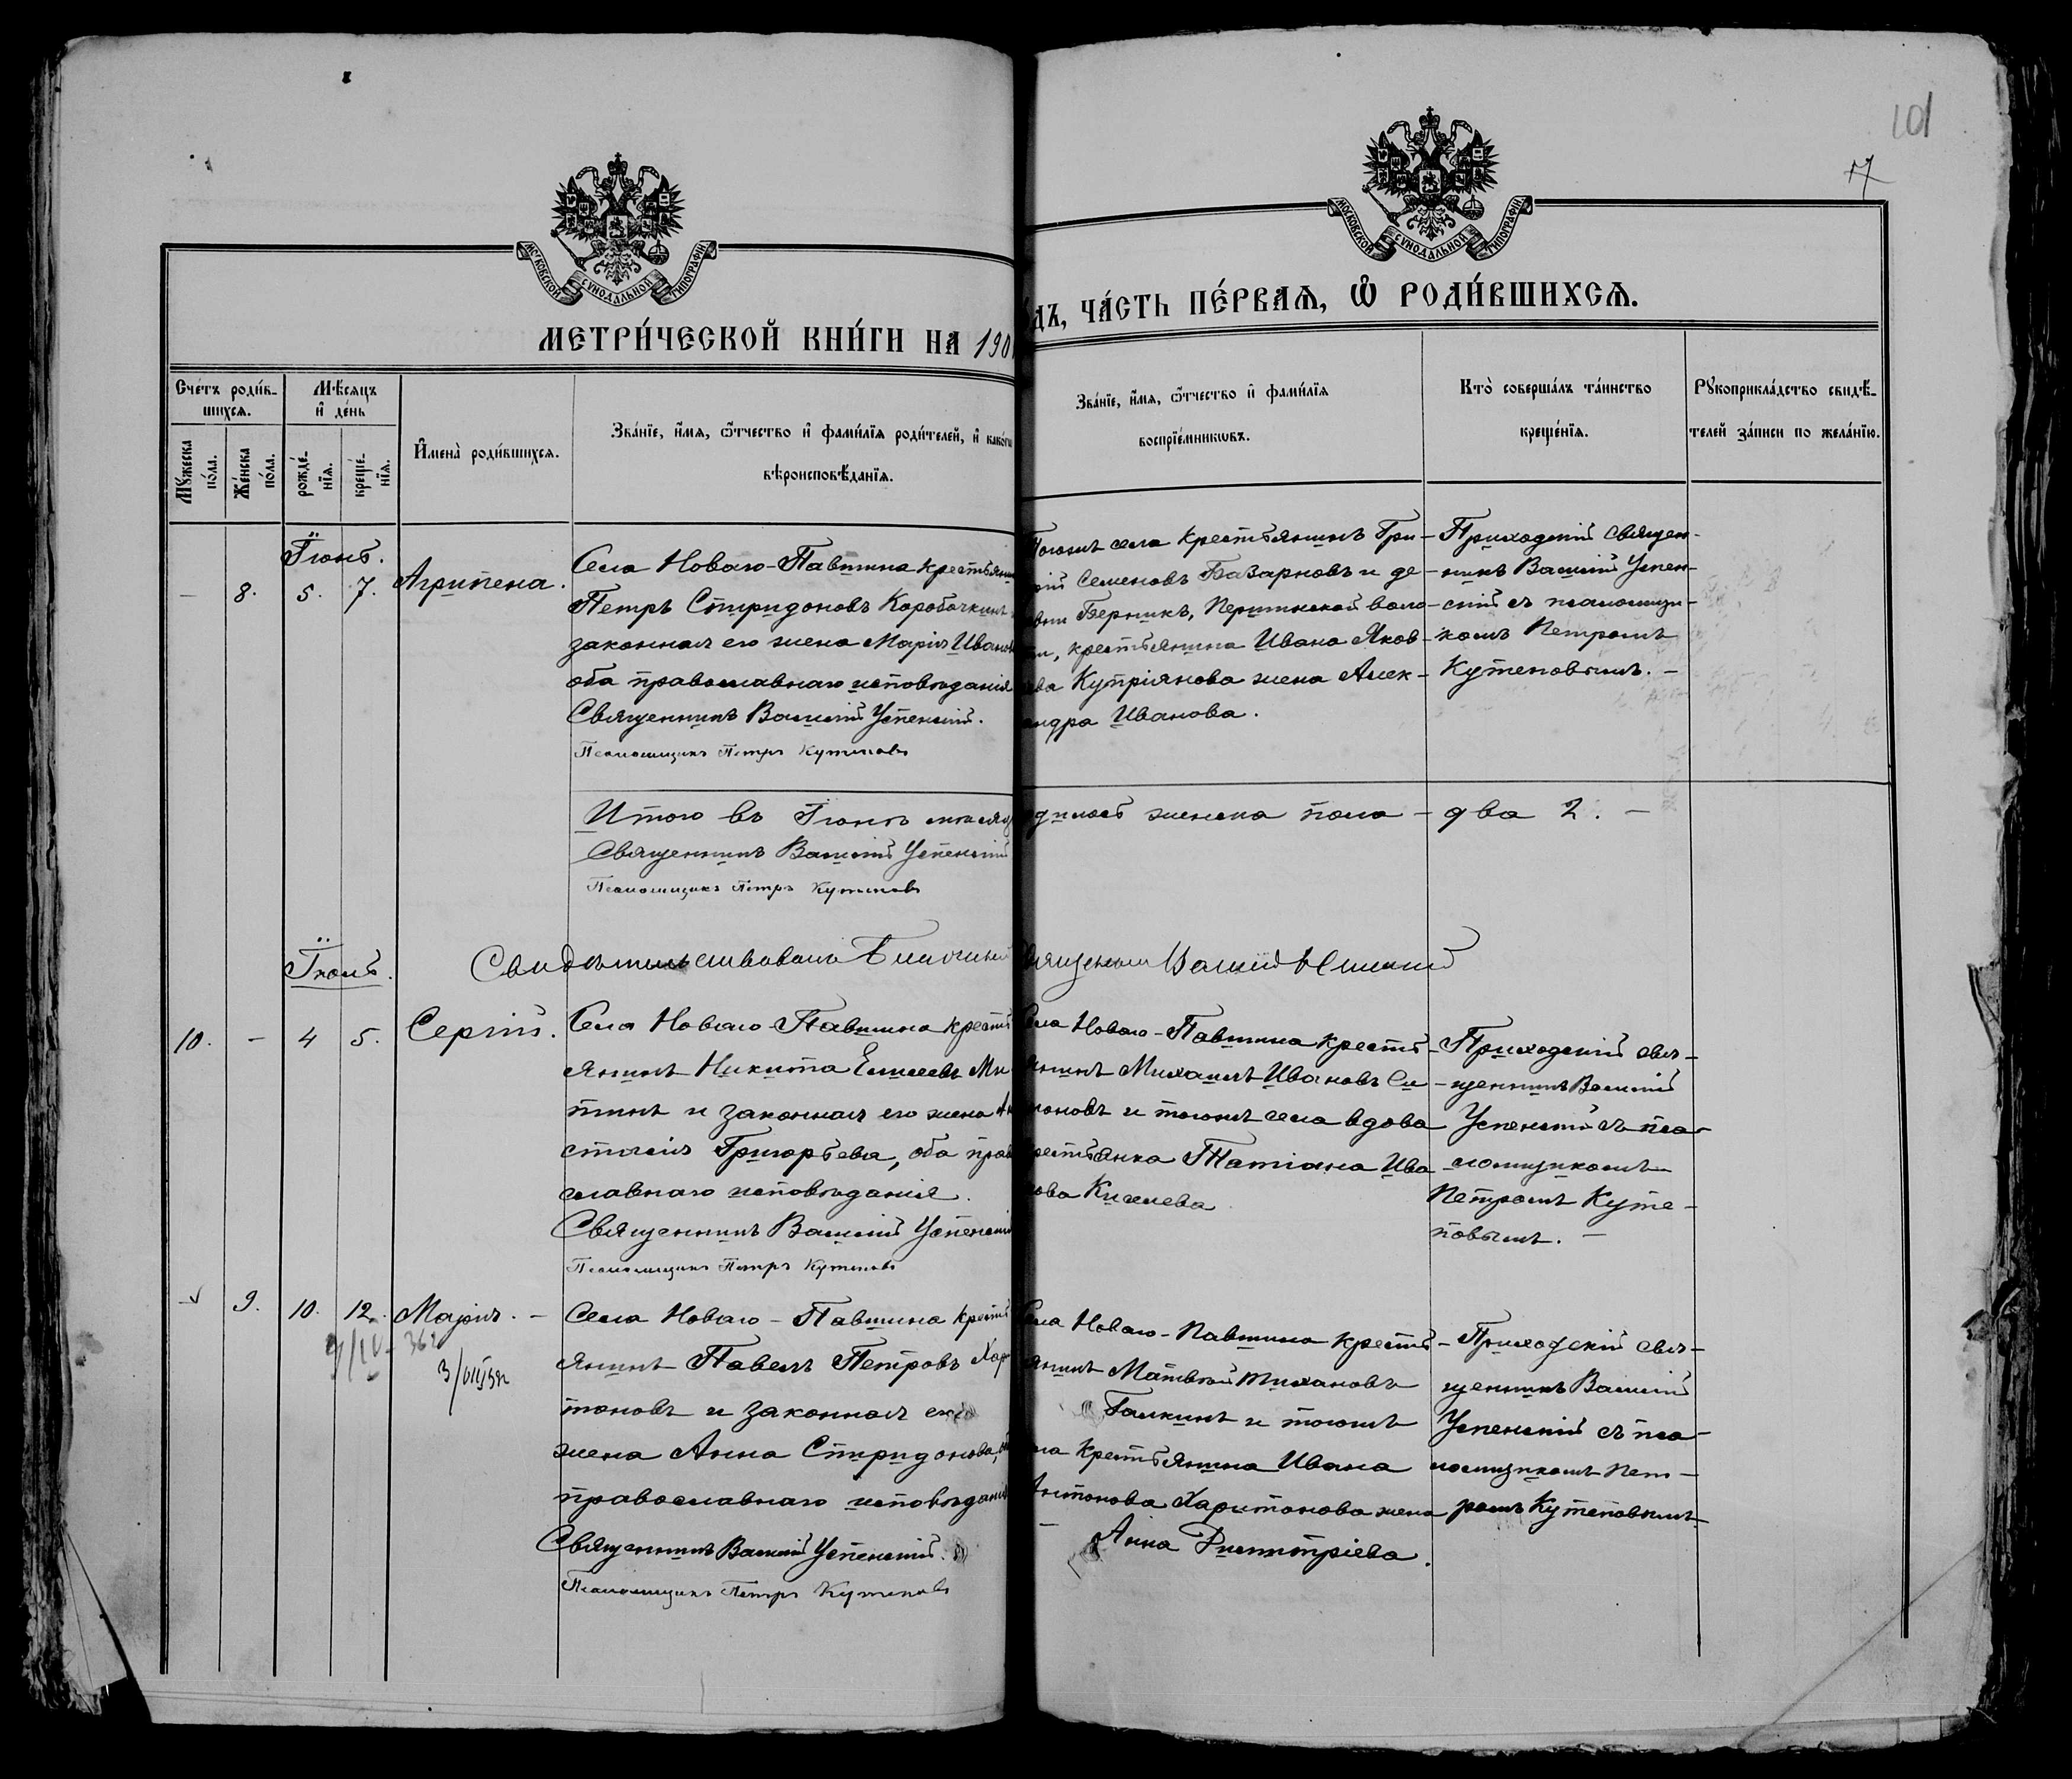 101
17
МОСКОВСКОЙ СУНОДАЛЬНОЙ ТИПОГРАФІИ
МОСКОВСКОЙ СУНОДАЛЬНОЙ ТИПОГРАФІИ
МЕТРИ́ЧЕСКОЙ КНИ́ГИ НА 190
ДЪ, ЧА́СТЬ ПЕ́РВАѦ, Ѡ РОДИ́ВШИХСѦ.
Сче́тъ роди́в-
шихсѧ.
Мѣ́сѧцъ
и҆ де́нь
Мꙋ́жеска
по́ла.
Же́нска
по́ла.
рожде́-
нїѧ.
креще́-
нїѧ.
И҆мена̀ роди́вшихсѧ.
Зва́нїе, и҆́мѧ, ѻ҆́тчество и҆ фами́лїѧ роди́телей, и҆
вѣроисповѣ́данїѧ.
Зва́нїе, и҆́мѧ, ѻ҆́тчество и҆ фами́лїѧ
воспрїе́мникѡвъ.
Кто̀ соверша́лъ та́инство
креще́нїѧ.
Рꙋкоприкла́дство свидѣ́-
телей за́писи по жела́нїю.
Іюнь.
— 8. 5. 7. Агрипена.
Села Новаго-Павшина крестьяни
Петръ Спиридоновъ Коробочкинъ
законная его жена Марія Иванов
оба православнаго исповѣданія
Священникъ Василій Успенскій.
Псаломщикъ Петръ Кутеповъ
Тогоже села крестьянинъ Гри-
рій Семеновъ Базарновъ и де-
вни Берникъ, Першинской воло-
ти, крестьянина Ивана Яков-
ева Купріянова жена Алек-
андра Иванова.
Приходскій священ-
никъ Василій Успен-
скій съ псаломщи-
комъ Петромъ
Кутеповымъ. —
Итого въ Іюнѣ мѣсяц
одилось женска пола — два 2. —
Священникъ Василій Успенскій
Псаломщикъ Петръ Кутеповъ
Іюль.
Свидѣтельствовалъ Благочинный
вященникъ Василій
10. — 4 5. Сергій.
Села Новаго-Павшина кресть
янинъ Никита Елисеевъ Ми
тинъ и законная его жена Ан
стасія Григорьева, оба прав
славнаго исповѣданія.
Священникъ Василій Успенскій
Псаломщикъ Петръ Кутеповъ
Села Новаго-Павшина кресть-
янинъ Михаилъ Ивановъ Си-
моновъ и тогоже села вдова
рестьянка Татіана Ива
нова Киселева
Приходскій свя-
щенникъ Василій
Успенскій съ пса-
ломщикомъ
Петромъ Куте-
повымъ. —
— 9. 10. 12. Марія. —
3/VIII
Села Новаго-Павшина кресть
янинъ Павелъ Петровъ Хар
тоновъ и законная его
жена Анна Спиридонова, об
православнаго исповѣданія
Священникъ Василій Успенскій.
Псаломщикъ Петръ Кутеповъ
Села Новаго-Павшина кресть-
янинъ Матвѣй Тихановъ
Галкинъ и тогоже
ела крестьянина Ивана
Антонова Харитонова жена
Анна Димитріева.
Приходскій свя-
щенникъ Василій
Успенскій съ пса-
ломщикомъ Пет-
ромъ Кутеповымъ